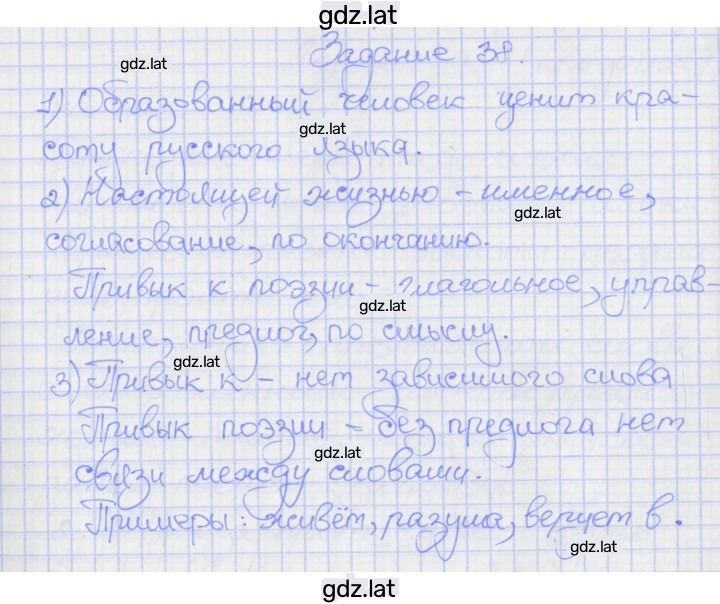 gdz.lat
Задание 38.
gdz.lat
1) Образованный человек ценит кра-
gdz.lat
соту русского языка.
2) Настоящей жизнью - именное,
gdz.lat
согласование, по окончанию.
Привык к поэзии - глагольное, управ-
gdz.lat
ление, предлог, по смыслу.
gdz.lat
3) Привык к - нет зависимого слова
Привык поэзии - без предлога нет
gdz.lat
связи между словами.
Примеры: живёт, разума, верует в.
gdz.lat
gdz.lat